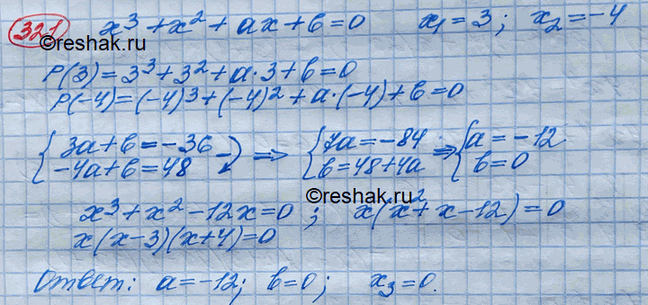 321 x³ + x² + ax + b = 0 x₁ = 3; x₂ = -4
©reshak.ru
P(3) = 3³ + 3² + a·3 + b = 0
P(-4) = (-4)³ + (-4)² + a·(-4) + b = 0
{ 3a + b = -36 -4a + b = 48 ) ⇒ { 7a = -84 b = 48 + 4a ⇒ { a = -12 b = 0
©reshak.ru
x³ + x² - 12x = 0 ; x(x² + x - 12) = 0
x(x-3)(x+4) = 0
Ответ: a = -12; b = 0; x₃ = 0.
©reshak.ru